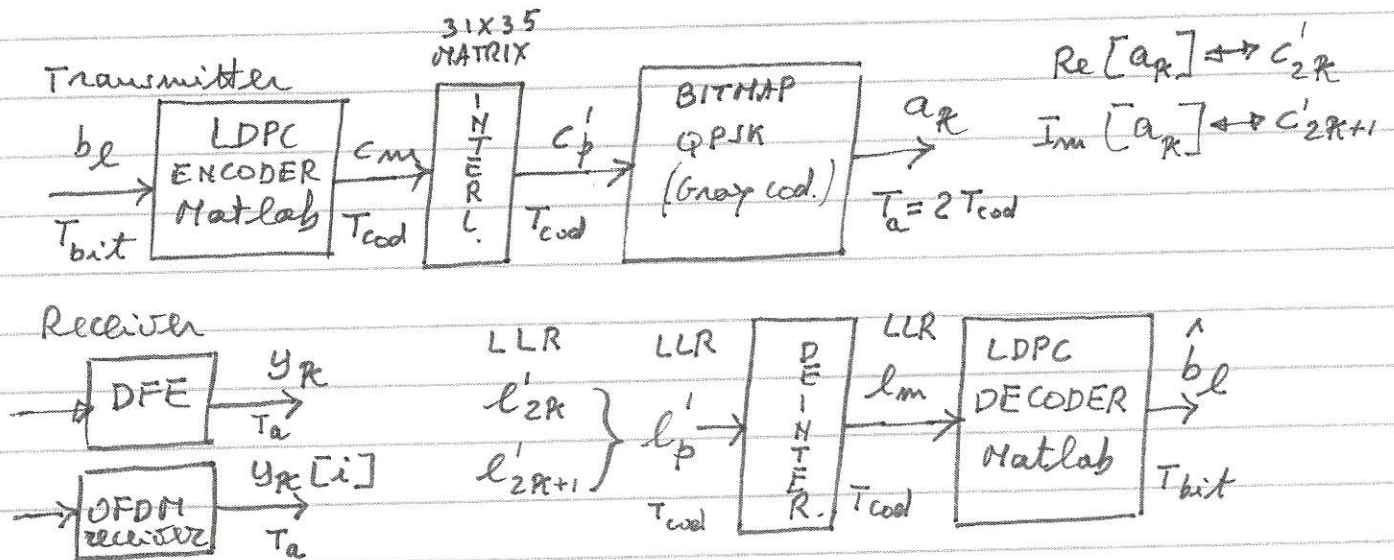 31X35
MATRIX
Transmitter
b_l
T_bit
LDPC
ENCODER
Matlab
c_m
T_cod
INTERL.
c'_p
T_cod
BITMAP
QPSK
(Gray cod.)
a_k
T_a = 2 T_cod
Re [a_k] ↔ c'_2k
Im [a_k] ↔ c'_2k+1
Receiver
DFE
y_k
T_a
OFDM
receiver
y_k [i]
T_a
LLR
l'_2k
l'_2k+1
LLR
l'_p
T_cod
DEINTER.
LLR
l_m
T_cod
LDPC
DECODER
Matlab
b̂_l
T_bit